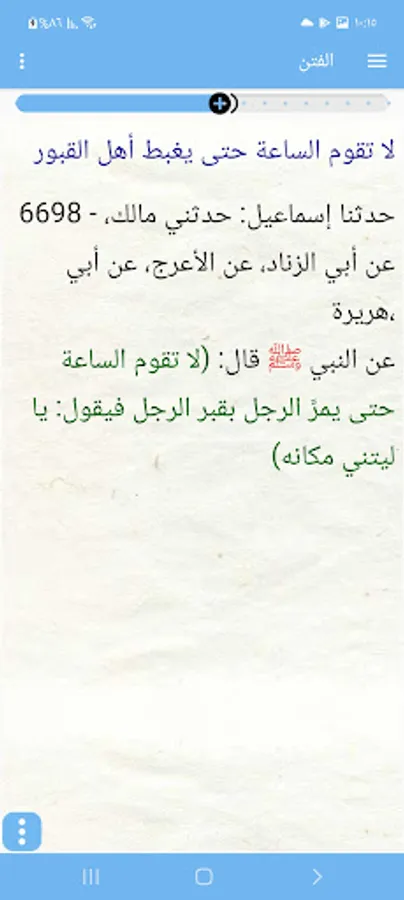 ١٠:١٥
٨٦%
الفتن
لا تقوم الساعة حتى يغبط أهل القبور
حدثنا إسماعيل: حدثني مالك، - 6698
عن أبي الزناد، عن الأعرج، عن أبي
هريرة،
عن النبي ﷺ قال: (لا تقوم الساعة
حتى يمرَّ الرجل بقبر الرجل فيقول: يا
ليتني مكانه)